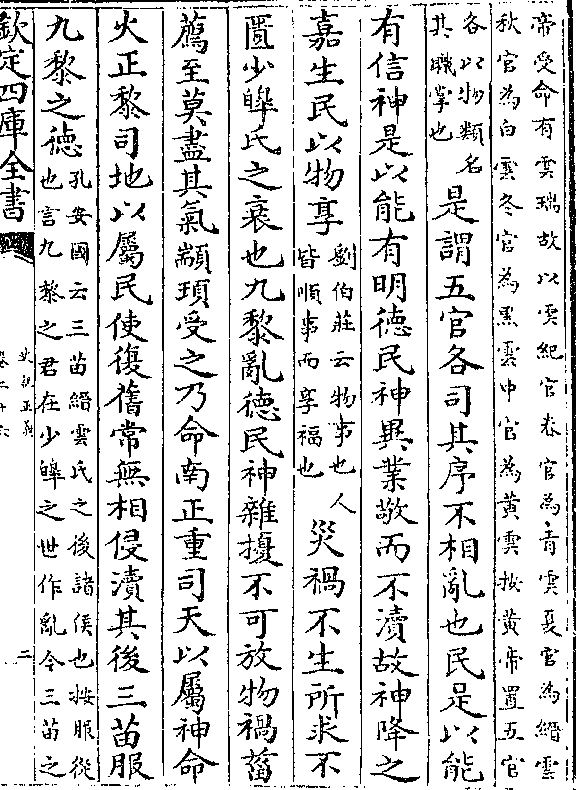 帝受命有雲瑞故以雲紀官春官為青雲夏官為縉雲
秋官為白雲冬官為黒雲中官為黄雲按黄帝置五官
各以物類名
其職掌也
是謂五官各司其序不相亂也民是以能
有信神是以能有明德民神異業敬而不瀆故神降之
嘉生民以物享
劉伯莊云物事也人
皆順事而享福也
災禍不生所求不
匱少皥氏之衰也九黎亂德民神雜擾不可放物禍菑
薦至莫盡其氣顓頊受之乃命南正重司天以屬神命
火正黎司地以屬民使復舊常無相侵瀆其後三苗服
九黎之德
孔安國云三苗縉雲氏之後諸侯也按服從
也言九黎之君在少皥之世作亂今三苗之
欽定四庫全書
史記正義
卷二十六
二